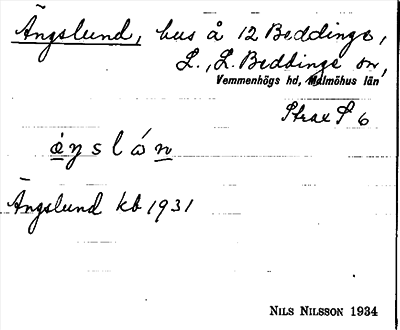 Ängslund, hus å 12 Beddinge,
L., L. Beddinge sn,
Vemmenhögs hd, Malmöhus län
Strax S 6
Ängslund kb 1931
NILS NILSSON 1934